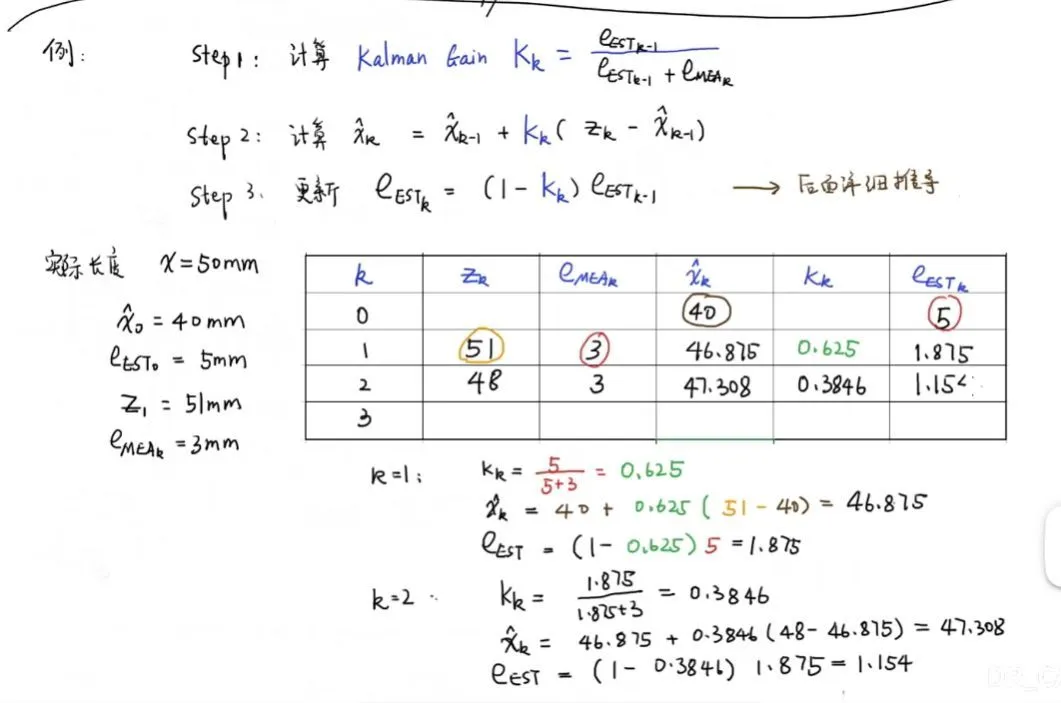 例: Step 1: 计算 Kalman Gain K_k = e_EST_{k-1} / (e_EST_{k-1} + e_MEA_k)
Step 2: 计算 x̂_k = x̂_{k-1} + K_k( z_k - x̂_{k-1})
Step 3. 更新 e_EST_k = (1 - K_k) e_EST_{k-1} → 后面详细推导
实际长度 x = 50mm
x̂_0 = 40mm
e_EST_0 = 5mm
z_1 = 51mm
e_MEA_k = 3mm
k z_k e_MEA_k x̂_k K_k e_EST_k
0 40 5
1 51 3 46.875 0.625 1.875
2 48 3 47.308 0.3846 1.154
3
k=1: K_k = 5 / (5+3) = 0.625
x̂_k = 40 + 0.625 ( 51 - 40) = 46.875
e_EST = (1 - 0.625) 5 = 1.875
k=2 : K_k = 1.875 / (1.875+3) = 0.3846
x̂_k = 46.875 + 0.3846 (48 - 46.875) = 47.308
e_EST = (1 - 0.3846) 1.875 = 1.154